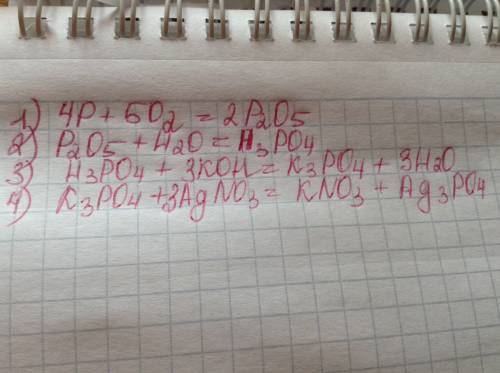 1) 4P + 5O2 = 2P2O5
2) P2O5 + H2O = H3PO4
3) H3PO4 + 3KOH = K3PO4 + 3H2O
4) K3PO4 + 3AgNO3 = KNO3 + Ag3PO4